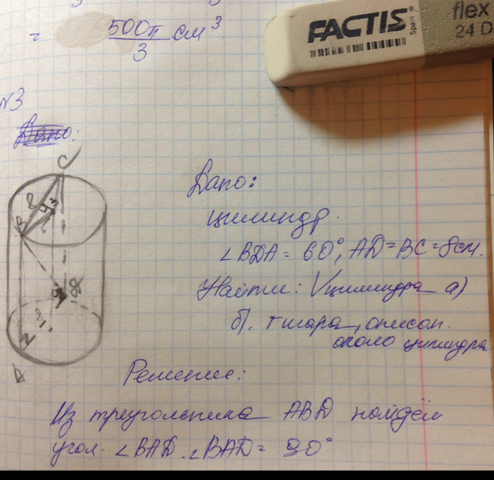 = 500π/3 см³
FACTIS
Spain
flex
24 D
№3
Дано:
C
B
A
Дано:
цилиндр.
∠BDA = 60°, AD = BC = 8см.
Найти: Vцилиндра а)
б). шара, описан.
около цилиндра
Решение:
Из треугольника ABD найдём
угол. ∠BAD. ∠BAD = 90°